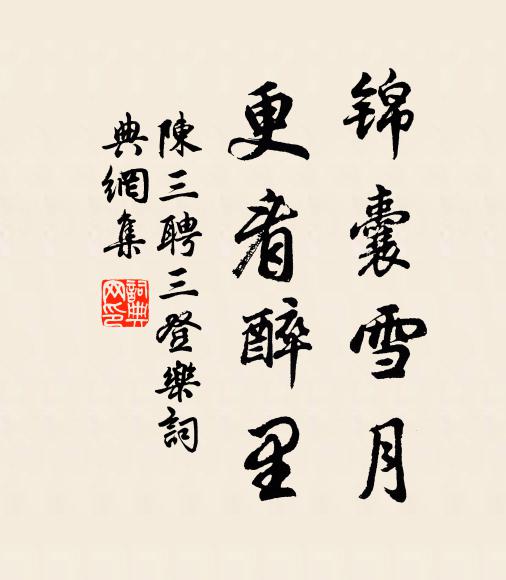 锦囊雪月
更看醉里
陳三聘三登樂詞
典網集
詞典网印